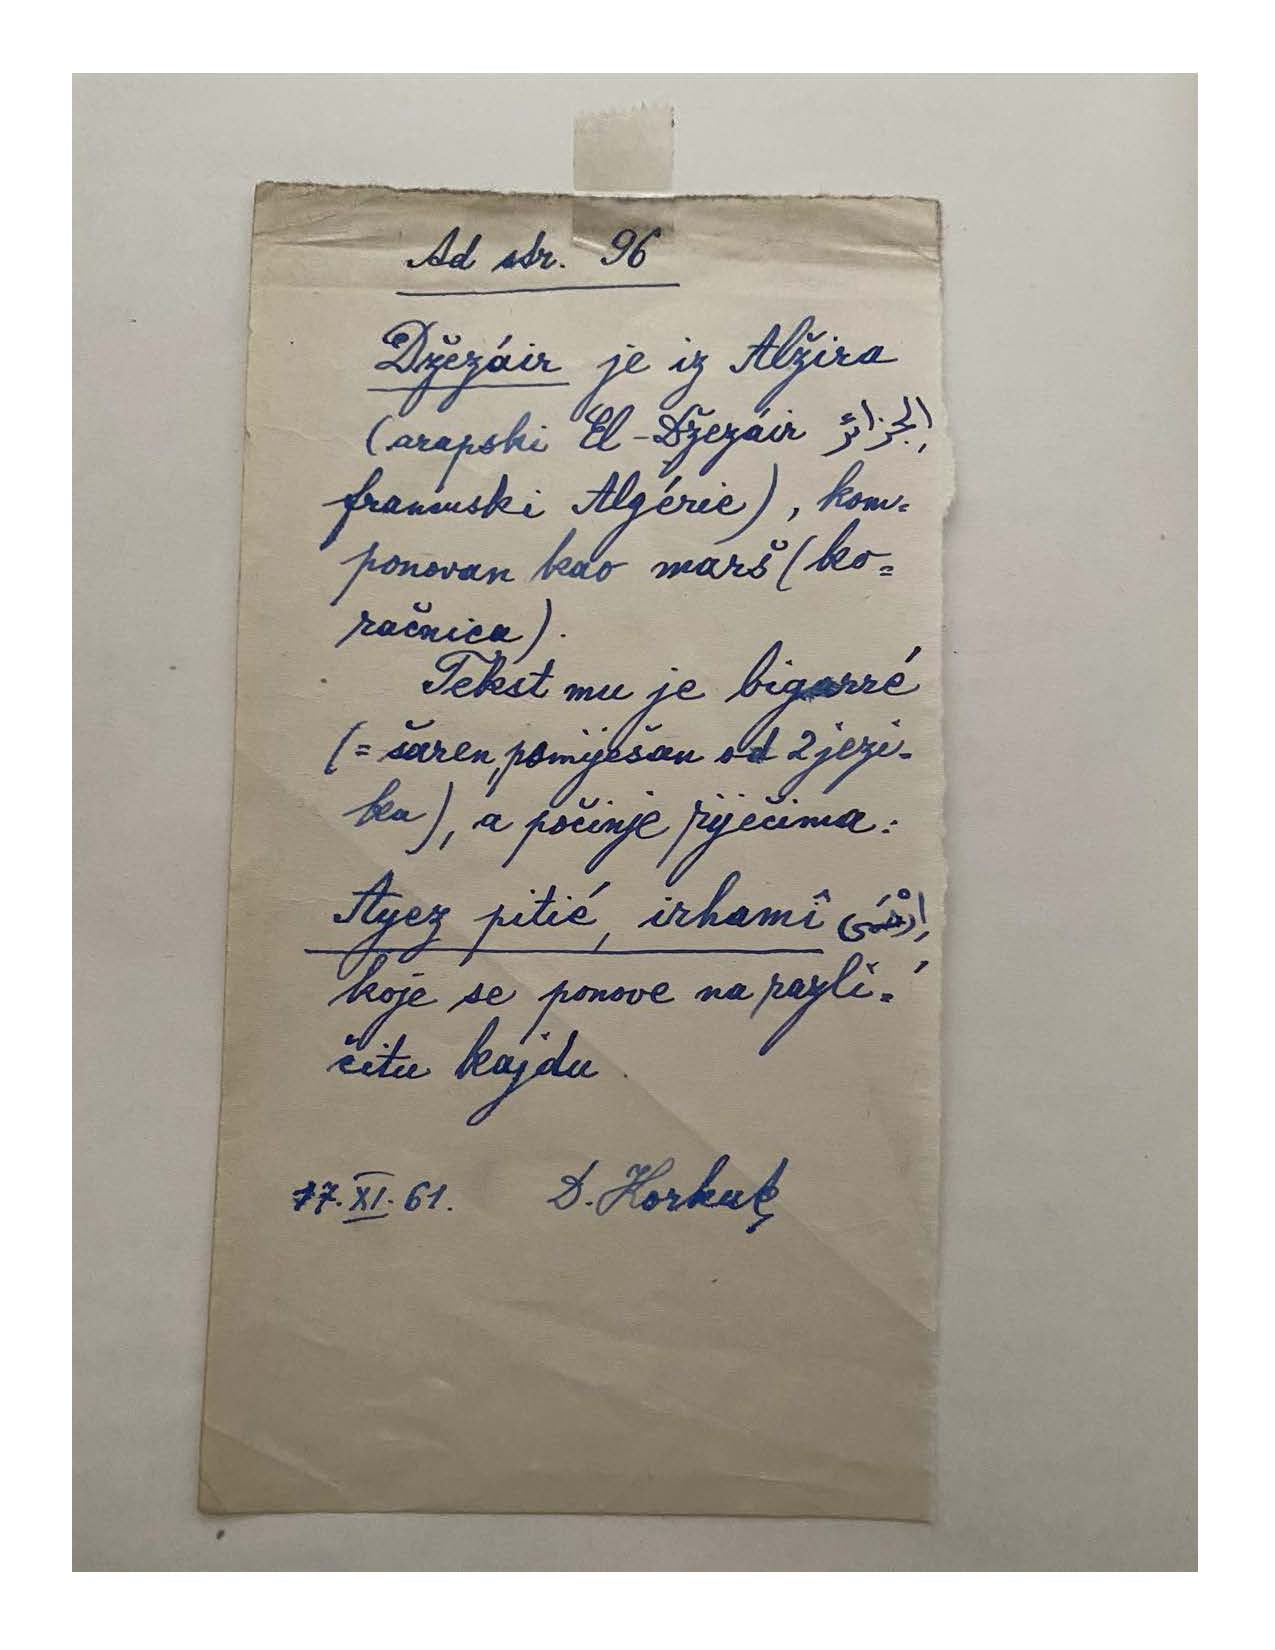 Ad str. 96
Džezáir je iz Alžira
(arapski El-Džezáir الجزائر,
francuski Algérie), kom=
ponovan kao marš (ko=
račnica).
Tekst mu je bigarré
(= šaren, pomiješan od 2 jezi-
ka), a počinje riječima:
Ayez pitié, irhamî
koje se ponove na razli=
čitu kajdu.
17. XI. 61. D. Korkut